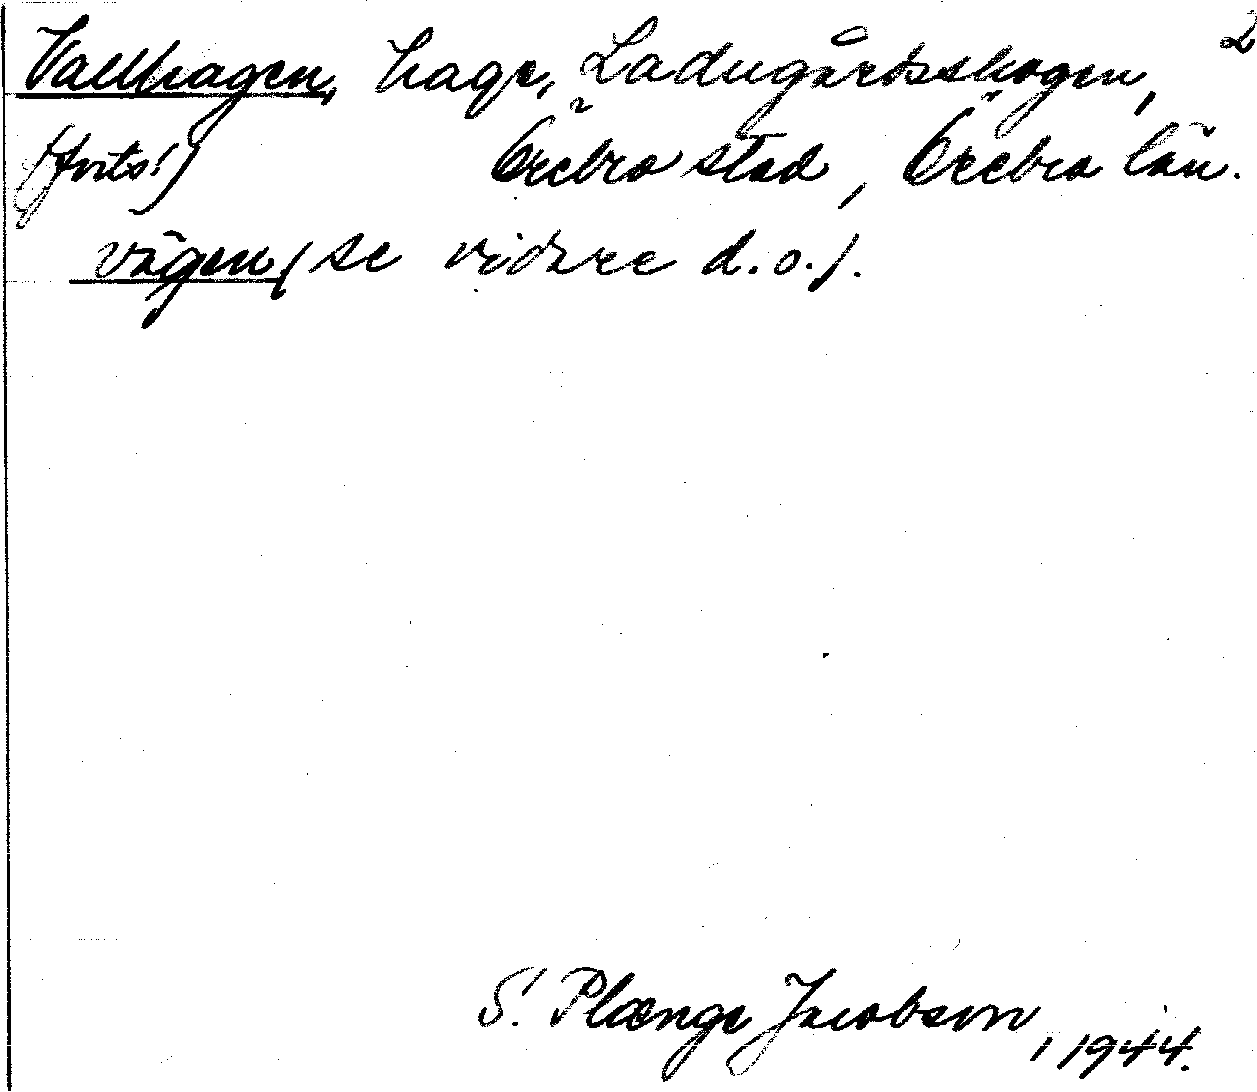 Vallhagen, hage, Ladugårdsskogen, 2
(forts.) Örebro stad, Örebro län.
vägen (se vidare d.o.).
S. Plænge Jacobson, 1944.